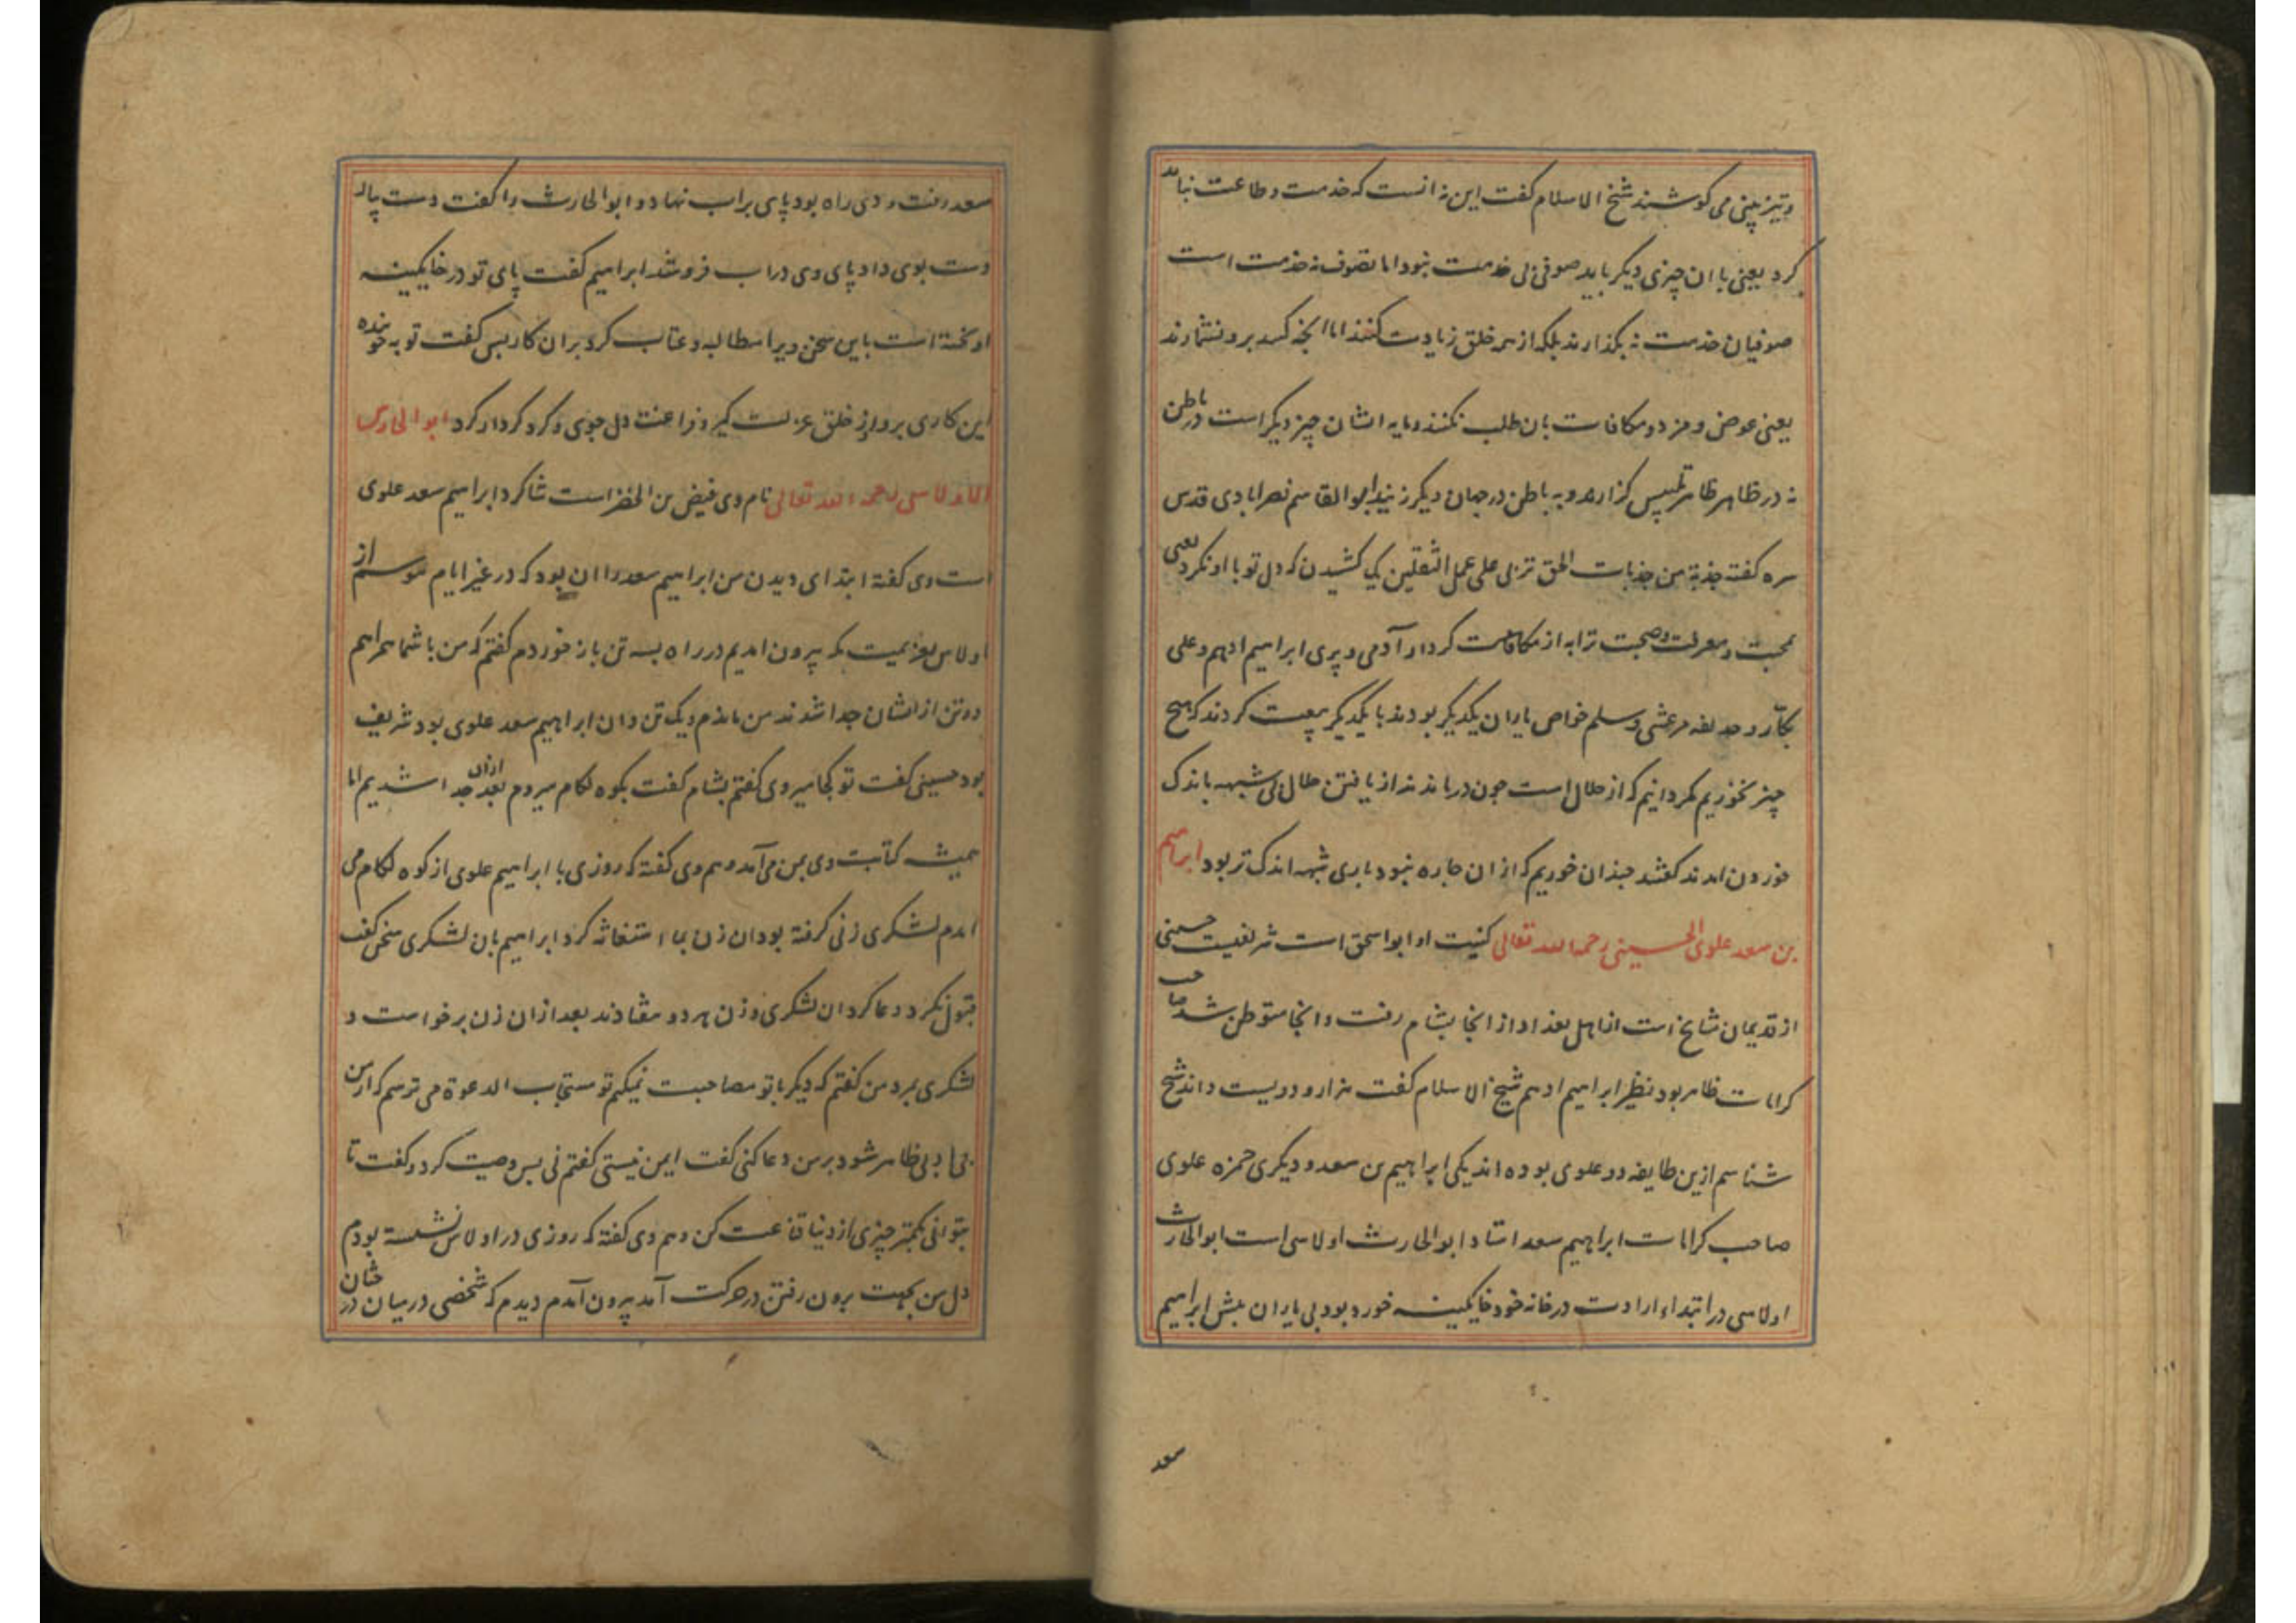 وتیزبینی می کوشند شیخ الاسلام گفت این نه انست که خدمت و طاعت نباید
کرد یعنی با ان چیزی دیگر باید صوفی بی خدمت نبود اما تصوف نه خدمت است
صوفیان خدمت نه بگذارند بلکه از سر خلق زیادت کنند اما انچه کنند برو نشمارند
یعنی عوض و مزد و مکافات بان طلب نکنند و مایه ایشان چیز دیگر است در باطن
نه در ظاهر ظاهر تلبیس گزارند و به باطن در جهان دیگر زیند ابو القاسم نصرابادی قدس
سره گفته جذبة من جذبات الحق تربی علی عمل الثقلین یکی کشیدن که دل تو با او نکرد یعنی
محبت و معرفت و صحبت ترا به از مکافات کردار آدمی و پری ابراهیم ادهم و علی
بکار و حذیفه مرعشی و سلم خواص یاران یکدیگر بودند با یکدیگر بیعت کردند که هیچ
چیز نخوریم مگر دانیم که از حلال است چون درماندند از یافتن حلال بی شبهه باندک
خوردن امدند گفتند چندان خوریم که از ان چاره نبود باری شبهه اندک تر بود ابراهیم
بن سعد علوی الحسینی رحمه الله تعالی کنیت او ابو اسحق است شریفیست حسینی
از قدیمان مشایخ است از اهل بغداد از انجا بشام رفت و انجا متوطن شد صاحب
کرامات ظاهر بود نظیر ابراهیم ادهم شیخ الاسلام گفت هزار و دویست و اند شیخ
شناسم ازین طایفه دو علوی بوده اند یکی ابراهیم بن سعد و دیگری حمزه علوی
صاحب کرامات ابراهیم سعد استاد ابو الحارث اولاسی است ابو الحارث
اولاسی در ابتداء ارادت در خانه خود خایگینه خورده بود بی یاران پیش ابراهیم
سعد
سعد رفت و وی راه بود پای بر اب نهاد و ابو الحارث را گفت دست بیار
دست بوی داد پای وی در اب فرو شد ابراهیم گفت پای تو در خایگینه
اویخته است باین سخن ویرا مطالبه و عتاب کرد بران کار پس گفت تو به خورنده
این کاری برو از خلق عزلت گیر و فراغت دل جوی و گرد کردار گرد ابو الحارث
الاولاسی رحمه الله تعالی نام وی فیض بن الخضر است شاگرد ابراهیم سعد علوی
است وی گفته ابتدای دیدن من ابراهیم سعد را ان بود که در غیر ایام موسم از
اولاس بعزیمت مکه بیرون امدیم در راه بسه تن باز خوردم گفتم که من با شما همراهم
دو تن از ایشان جدا شدند من ماندم و یک تن و ان ابراهیم سعد علوی بود شریف
بود حسینی گفت تو کجا میروی گفتم بشام گفت بکوه لکام میروم بعد ازان جدا شدیم اما
همیشه کتابت وی بمن می آمد و هم وی گفته که روزی با ابراهیم علوی از کوه لکام می
امدم لشکری زنی گرفته بود ان زن بما استغاثه کرد ابراهیم بان لشکری سخن گفت
قبول نکرد دعا کرد ان لشکری و زن هر دو بیفتادند بعد ازان زن برخواست و
لشکری بمرد من گفتم که دیگر با تو مصاحبت نمیکنم تو مستجاب الدعوة می ترسم که از من
بی ادبی ظاهر شود بر من دعا کنی گفت ایمن نیستی گفتم نی پس وصیت کرد و گفت تا
بتوانی بکمتر چیزی از دنیا قناعت کن و هم وی گفته که روزی در اولاس نشسته بودم
دل من بجهت برون رفتن در حرکت آمد بیرون آمدم دیدم که شخصی در میان درختان